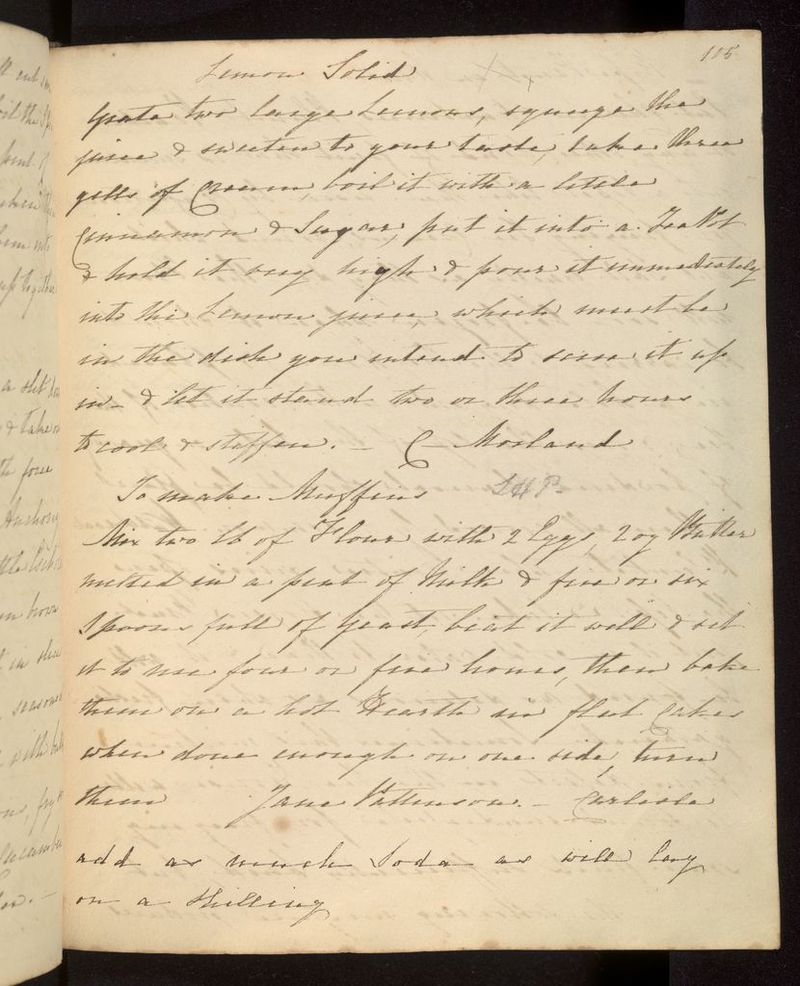 115
Lemon Solid
Grate two large Lemons, squeege the
juice & sweeten to your taste, take three
gills of Cream, boil it with a little
Cinnamon & Sugar, put it into a Tea Pot
& hold it very high & pour it immediately
into the Lemon juice, which must be
in the dish you intend to serve it up
in - & let it stand two or three hours
to cool & stiffen. - C Morland
To make Muffins
Mix two lb of Flour with 2 Eggs, 2 oz Butter
melted in a pint of Milk & five or six
Spoons full of Yeast beat it well & set
it to rise four or five hours, then bake
them on a hot Hearth in flat Cakes
when done enough on one side, turn
them Jane Pattinson. - Carlisle
add as much Soda as will lay
on a Shilling